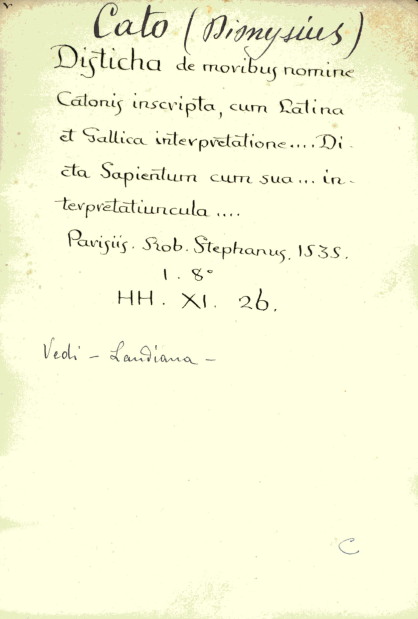 Cato (Dionysius)
Disticha de moribus nomine
Catonis inscripta, cum Latina
et Gallica interpretatione.... Di-
cta Sapientum cum sua... in-
terpretatiuncula ....
Parisiis. Rob. Stephanus, 1535.
1. 8°
HH. XI. 26.
Vedi - Landiana -
C